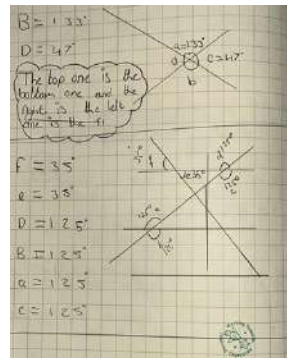 B = 133°
D = 47°
a=133°
d
c=47°
b
The top one is the
bottom one and the
right is the left
one is the fi
f = 35°
e = 35°
D = 125°
B = 125°
a = 125°
c = 125°
f
e35°
125°
125°
125°